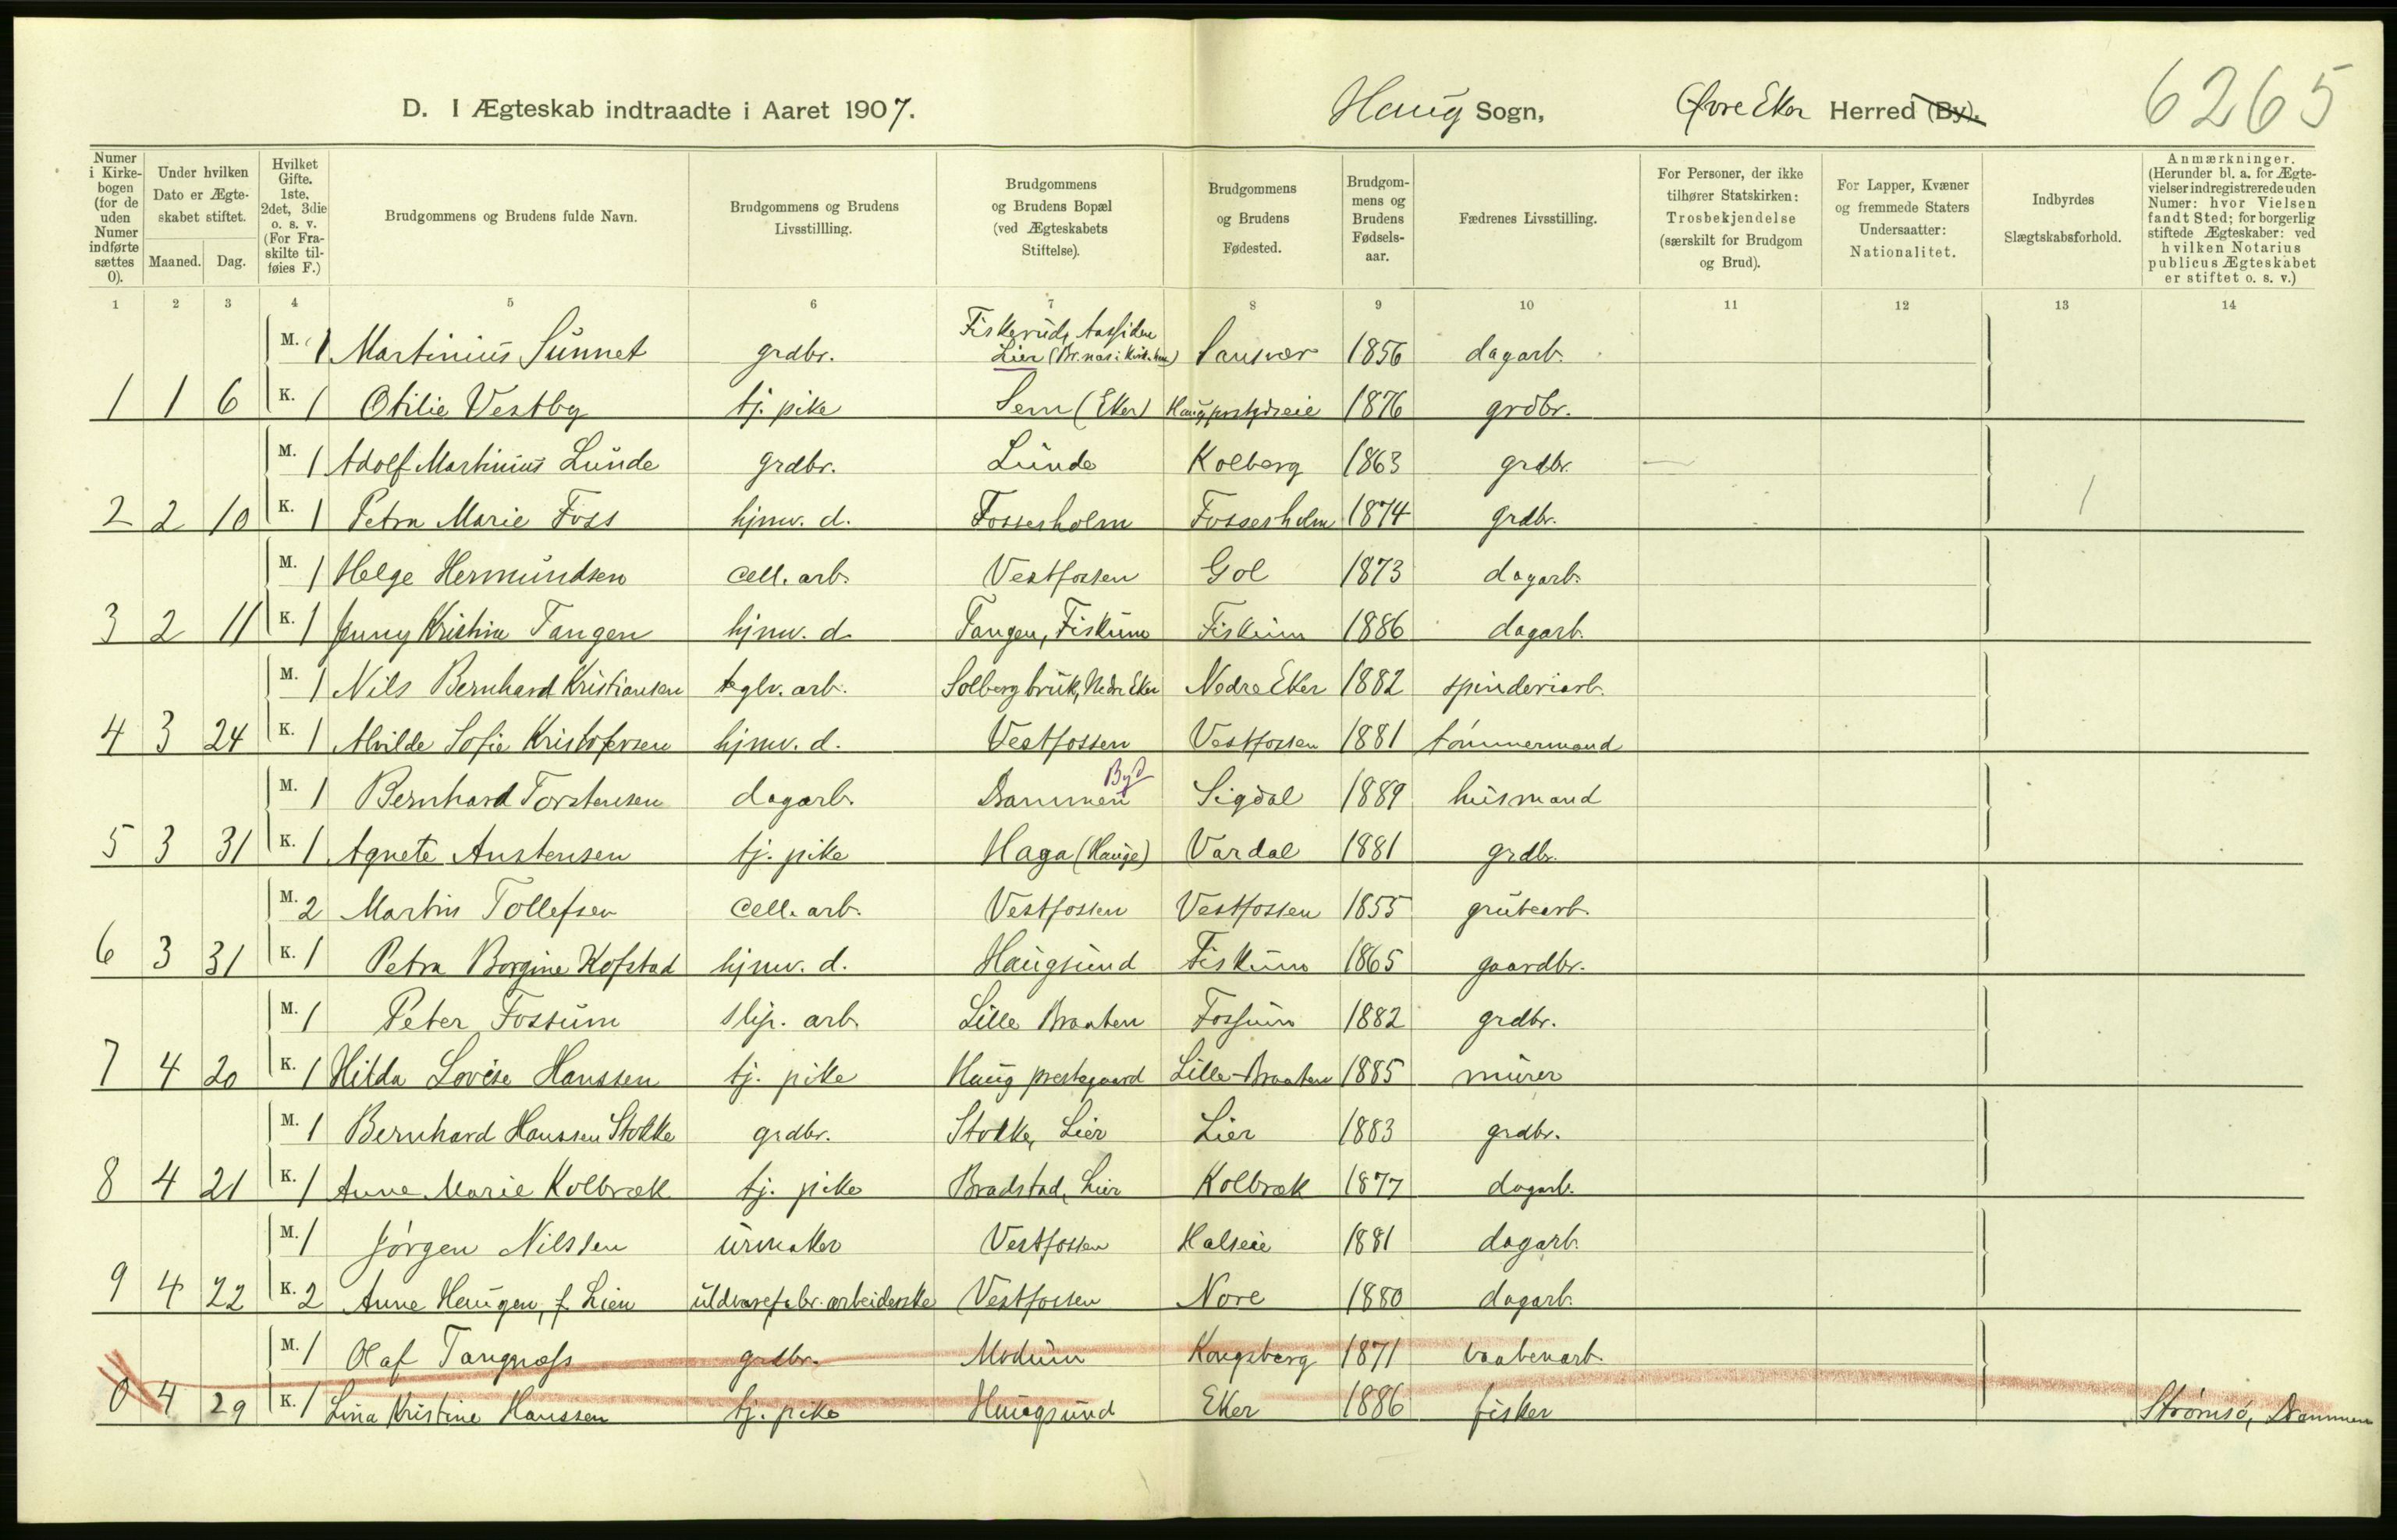 D. I Ægteskab indtraadte i Aaret 1907. Haug Sogn, Øvre Eker Herred (By). 6265
Numer i Kirke-bogen (for de uden Numer indførte sættes 0).
Under hvilken Dato er Ægte-skabet stiftet.
Maaned. Dag.
Hvilket Gifte. 1ste, 2det, 3die o. s. v. (For Fra-skilte til-føies F.)
Brudgommens og Brudens fulde Navn.
Brudgommens og Brudens Livsstillling.
Brudgommens og Brudens Bopæl (ved Ægteskabets Stiftelse).
Brudgommens og Brudens Fødested.
Brudgom-mens og Brudens Fødsels-aar.
Fædrenes Livsstilling.
For Personer, der ikke tilhører Statskirken: Trosbekjendelse (særskilt for Brudgom og Brud).
For Lapper, Kvæner og fremmede Staters Undersaatter: Nationalitet.
Indbyrdes Slægtskabsforhold.
Anmærkninger. (Herunder bl. a. for Ægte-vielser indregistrerede uden Numer: hvor Vielsen fandt Sted; for borgerlig stiftede Ægteskaber: ved hvilken Notarius publicus Ægteskabet er stiftet o. s. v.)
1 2 3 4 5 6 7 8 9 10 11 12 13 14
M. 1 Martinius Sunnet grdbr. Fiskerud, Aassiden Lier Sansvær 1856 dagarb.
1 1 6 K. 1 Otilie Vestby tj. pike Sem (Eker) 1876 grdbr.
M. 1 Adolf Martinius Lunde grdbr. Lunde Kolberg 1863 grdbr.
2 2 10 K. 1 Petra Marie Foss hjmv. d. Fossesholm Fossesholm 1874 grdbr. 1
M. 1 Helge Hermundsen cell. arb. Vestfossen Gol 1873 dagarb.
3 2 11 K. 1 Jenny Kristine Tangen hjmv. d. Tangen, Fiskum Fiskum 1886 dagarb.
M. 1 Nils Bernhard Kristiansen teglv. arb. Solbergbruk, Nedre Eker Nedre Eker 1882 spinderiarb.
4 3 24 K. 1 Alvilde Sofie Kristofersen hjmv. d. Vestfossen Vestfossen 1881 tømmermand
M. 1 Bernhard Torstensen dagarb. Drammen By? Sigdal 1889 husmand
5 3 31 K. 1 Agnete Austensen tj. pike Haga (Hauge) Vardal 1881 grdbr.
M. 2 Martin Tollefsen cell. arb. Vestfossen Vestfossen 1855 grubearb.
6 3 31 K. 1 Petra Borgine Hofstad hjmv. d. Haugsund Fiskum 1865 gaardbr.
M. 1 Peter Fossum slip. arb. Lille Braaten Fossum 1882 grdbr.
7 4 20 K. 1 Hilda Lovise Hanssen tj. pike Haug prestegaard Lille-Braaten 1885 murer
M. 1 Bernhard Hanssen Stokke grdbr. Stokke, Lier Lier 1883 grdbr.
8 4 21 K. 1 Anne Marie Kolbræk tj. pike Bradstad, Lier Kolbræk 1877 dagarb.
M. 1 Jörgen Nilssen urmaker Vestfossen Halseie 1881 dagarb.
9 4 22 K. 2 Anne Haugen, f. Lien uldvarefabr. arbeiderske Vestfossen Nore 1880 dagarb.
M. 1 Olaf Tangnæss grdbr. Modum Kongsberg 1871 vaabenarb.
0 4 29 K. 1 Lina Kristine Hanssen tj. pike Haugsund Eker 1886 fisker Strömsö, Drammen